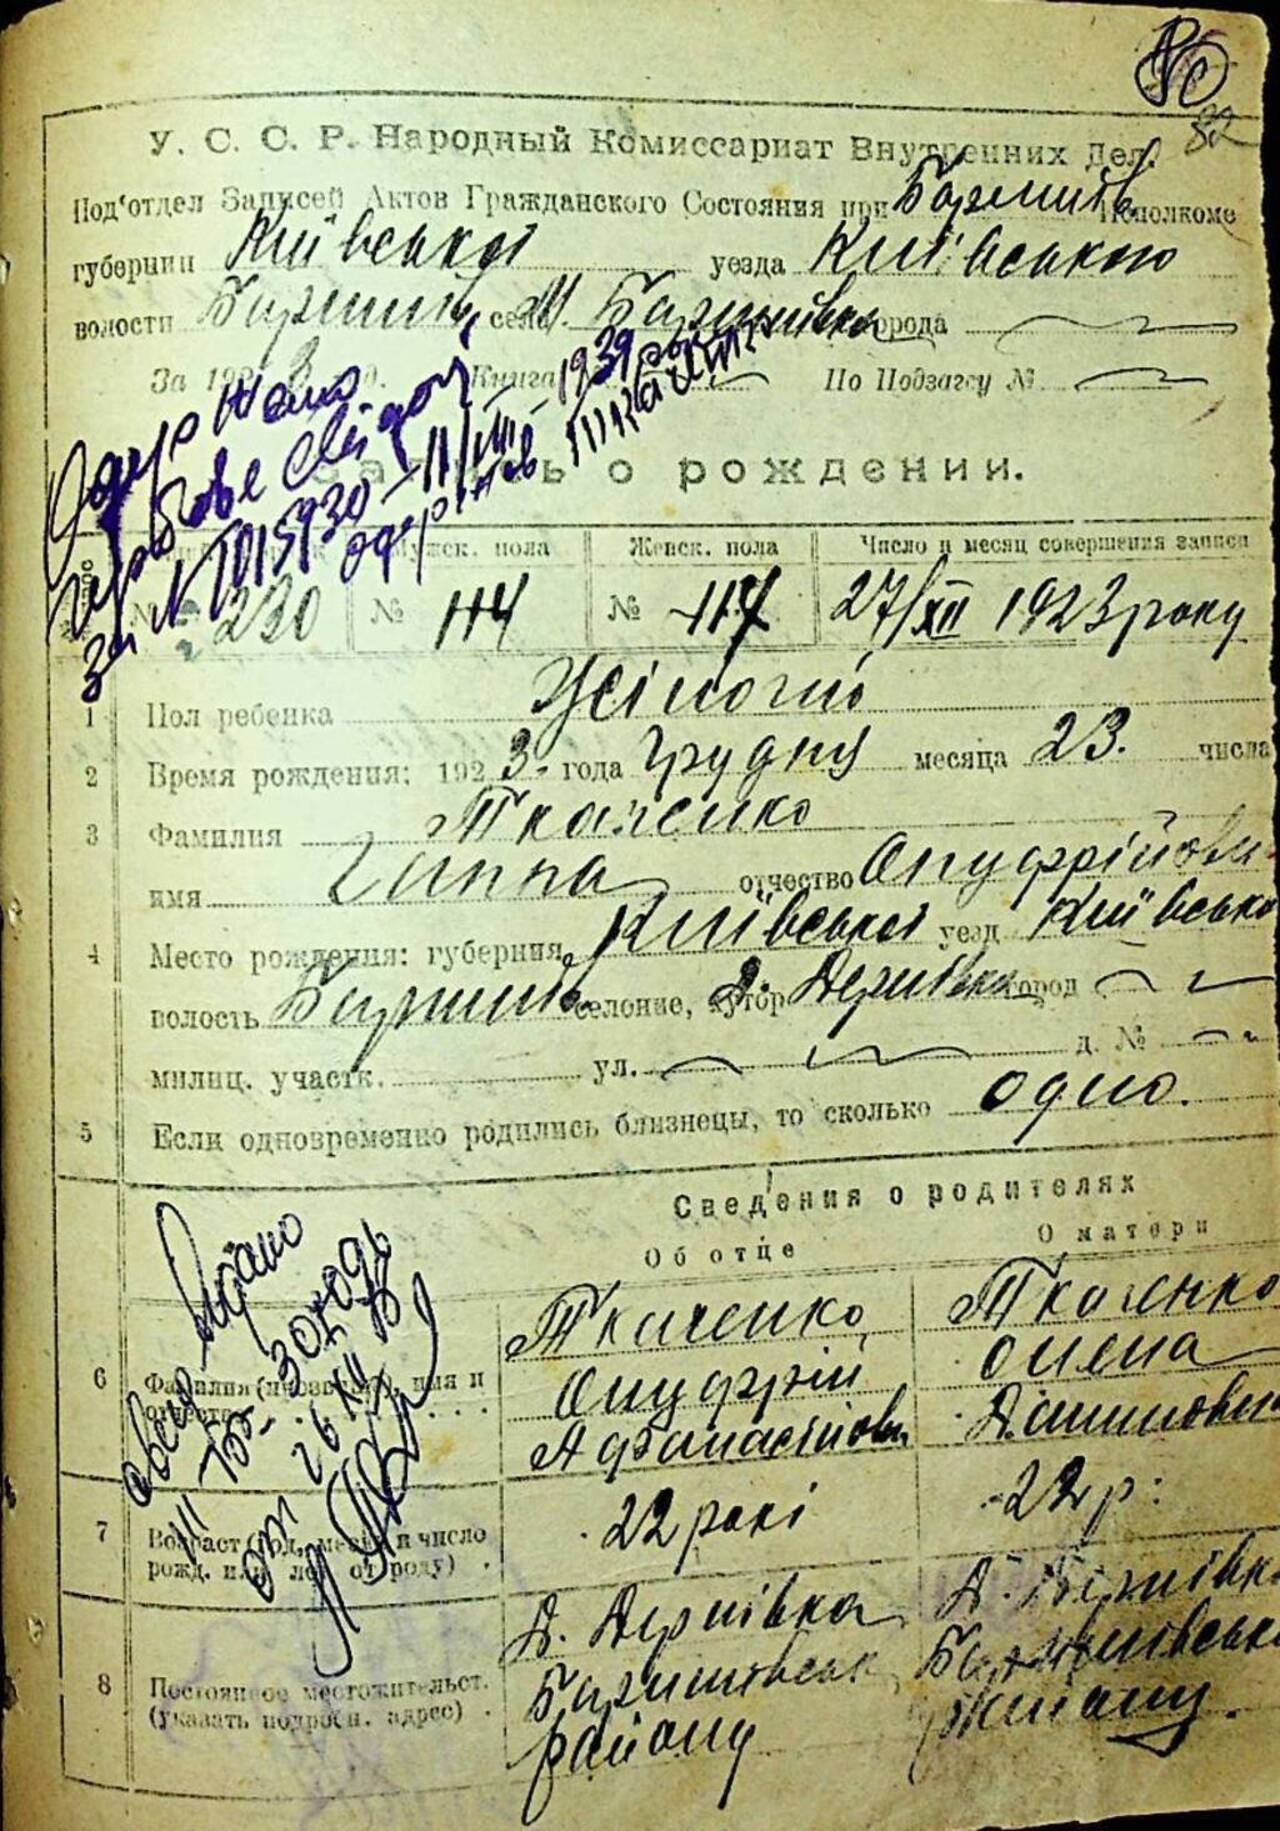 82
У. С. С. Р. Народный Комиссариат Внутренних Дел.
Под'отдел Записей Актов Гражданского Состояния при Баришів. Исполкоме
губернии Київської уезда Київського
волости Баришів. село М. Баришівка города
За 1923 год. Книга По Подзагсу №
Запись о рождении.
Мужск. пола Женск. пола Число и месяц совершения записи
№ 230 № 114 № 117 27/XII 1923 року
Одержано
за № 1015930 - 11/VIII - 1939 року
одержав Ткаченко
1 Пол ребенка Жіночий
2 Время рождения: 1923. года Грудня месяца 23. числа
3 Фамилия Ткаченко
имя Ганна отчество Онуфрійови
4 Место рождения: губерния Київської уезд Київсько
волость Баришів. селение, хутор Д. Дернівка город
милиц. участк. ул. д. №
5 Если одновременно родились близнецы, то сколько одно.
Сведения о родителях
Об отце О матери
6 Фамилия (прозвище), имя и отчество
Ткаченко Онуфрій Афанасійови
Ткаченко Олена
7 Возраст (год, месяц и число рожд. или лет от роду)
22 рокі 22 р.
8 Постоянное местожительст. (указать подробн. адрес)
Д. Дернівка Баришівськ району
Д. Дернівк Баришівськ району.
Видано
от 26 XII